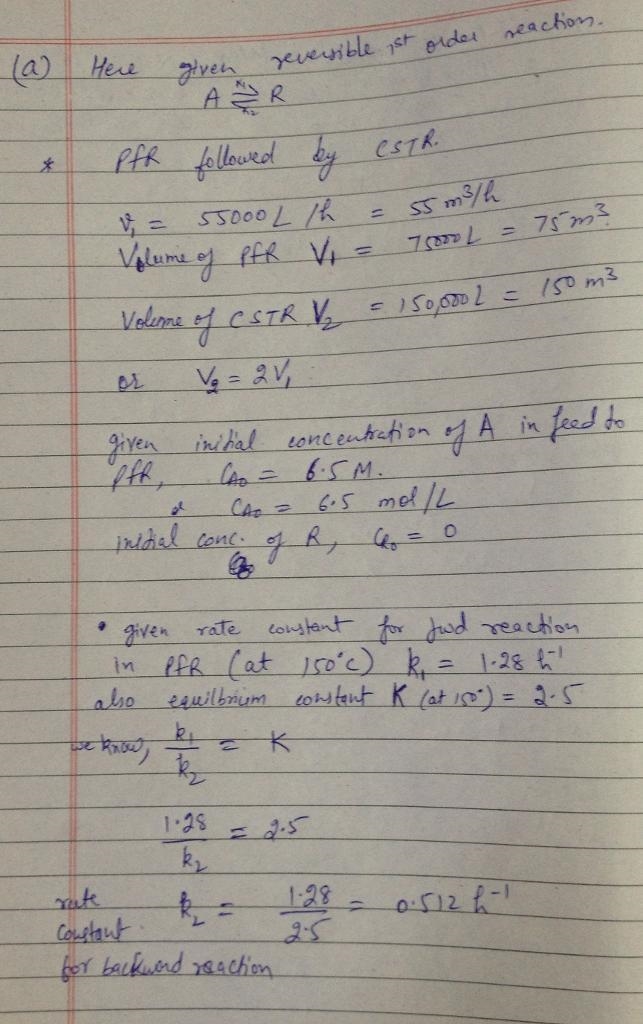 (a) Here given reversible 1st order reaction.
A ⇌ R
k1
k2
* PFR followed by CSTR.
v1 = 55000 L /h = 55 m³/h
Volume of PFR V1 = 75000 L = 75 m³
Volume of CSTR V2 = 150,000 L = 150 m³
or V2 = 2V1
given initial concentration of A in feed to
PFR, CA0 = 6.5 M.
CA0 = 6.5 mol/L
initial conc. of R, CR0 = 0
• given rate constant for fwd reaction
in PFR (at 150°C) k1 = 1.28 h⁻¹
also equilbrium constant K (at 150°) = 2.5
we know, k1/k2 = K
1.28/k2 = 2.5
rate k2 = 1.28/2.5 = 0.512 h⁻¹
constant
for backward reaction